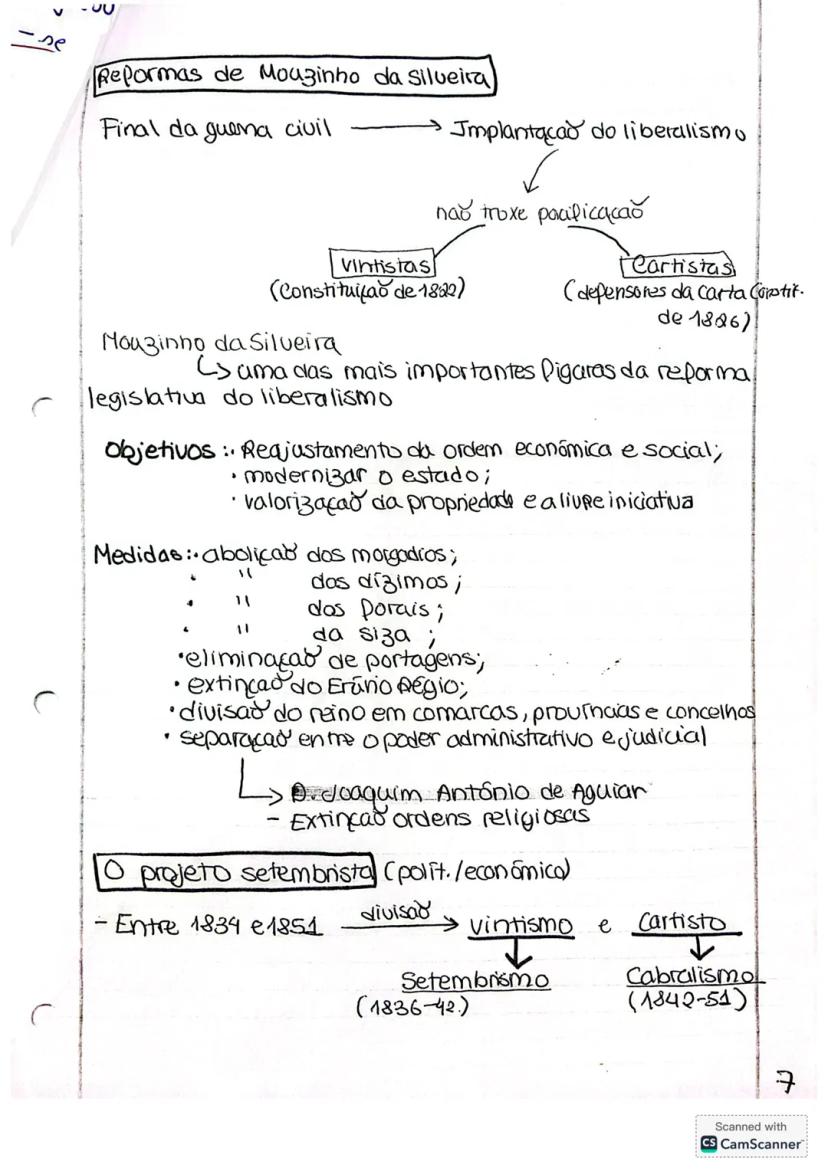 - se
Reformas de Mouzinho da Silveira
Final da guerra civil → Implantação do liberalismo
não troxe pacificação
Vintistas Cartistas
(Constituição de 1822) (defensores da Carta Constit.
de 1826)
Mouzinho da Silveira
↳ uma das mais importantes figuras da reforma
legislativa do liberalismo
Objetivos: • Reajustamento da ordem económica e social;
• modernizar o estado;
• valorização da propriedade e a livre iniciativa
Medidas: • abolição dos morgadios;
• " dos dízimos;
• " dos forais;
• " da siza;
• eliminação de portagens;
• extinção do Erário Régio;
• divisão do reino em comarcas, províncias e concelhos
• separação entre o poder administrativo e judicial
↳ Joaquim António de Aguiar
- Extinção ordens religiosas
O projeto setembrista (polít./económico)
- Entre 1834 e 1851 divisão → vintismo e Cartisto
Setembrismo Cabralismo
(1836-42.) (1842-51)
7
Scanned with
CS CamScanner